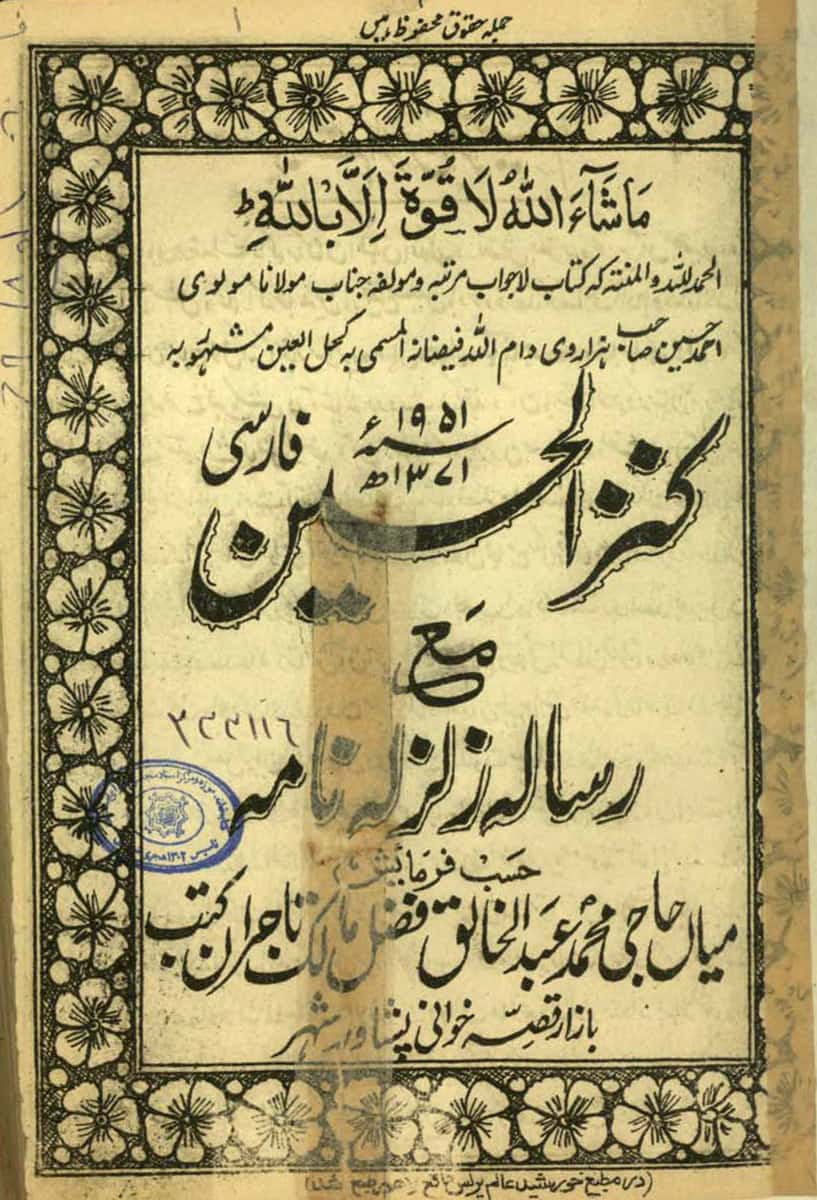 جملہ حقوق محفوظ ہیں
مَا شَآءَ اللّٰهُ لَا قُوَّةَ اِلَّا بِاللّٰهِ ط
الحمد للہ والمنتہ کہ کتاب لاجواب مرتبہ و مولفہ جناب مولانا مولوی
احمد حسین صاحب ہزاروی دام اللہ فیضانہ المسمی بہ کحل العین مشہور بہ
۱۹۵۱ء
سنہ
۱۳۷۱ھ
فارسی
کنز الحسین
مَع
رسالہ زلزلہ نامہ
۲۳۳۱۱۶
حسب فرمایش
میاں حاجی محمد عبد الخالق فضل مالک تاجران کتب
بازار قصّہ خوانی پشاور شہر
(در مطبع خورشید عالم پریس طبع شد)